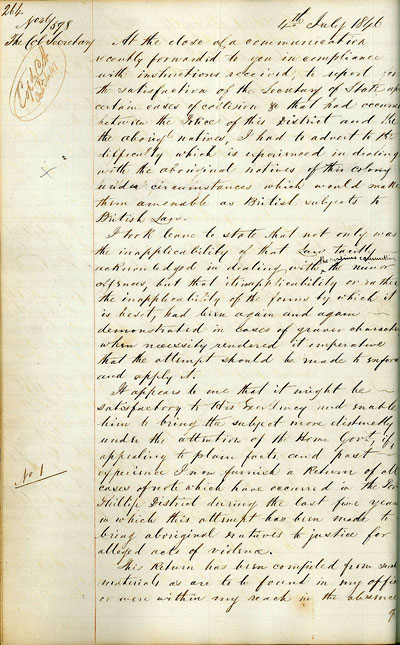 264.
No 46/598
4th July 1846
The Col Secretary
At the close of a communication
recently forwarded to you in compliance
with instructions received, to report for
the satisfaction of the Secretary of State upon
certain cases of collision & that had occurred
between the Police of this District and the
the aborigl natives, I had to advert to the
difficulty which is experienced in dealing
with the aboriginal natives of this colony
under circumstances which would make
them amenable as British subjects to
British Law.
I took leave to state that not only was
the inapplicability of that Law tacitly
acknowledged in dealing with the minor
offences, but that its inapplicability or rather
the inapplicability of the forms by which it
is beset, had been again and again
demonstrated in cases of graver character
when necessity rendered it imperative
that the attempt should be made to enforce
and apply it.
It appears to me that it might be
satisfactory to His Excellency and enable
him to bring the subject more distinctly
under the attention of the Home Govt, if
appealing to plain facts and past
experience I now furnish a Return of all
No 1
cases of note which have occurred in the Port
Phillip District during the last five years
in which this attempt has been made to
bring aboriginal natives to justice for
alleged acts of violence.
This Return has been compiled from such
materials as are to be found in my office
or were within my reach in the absence
of